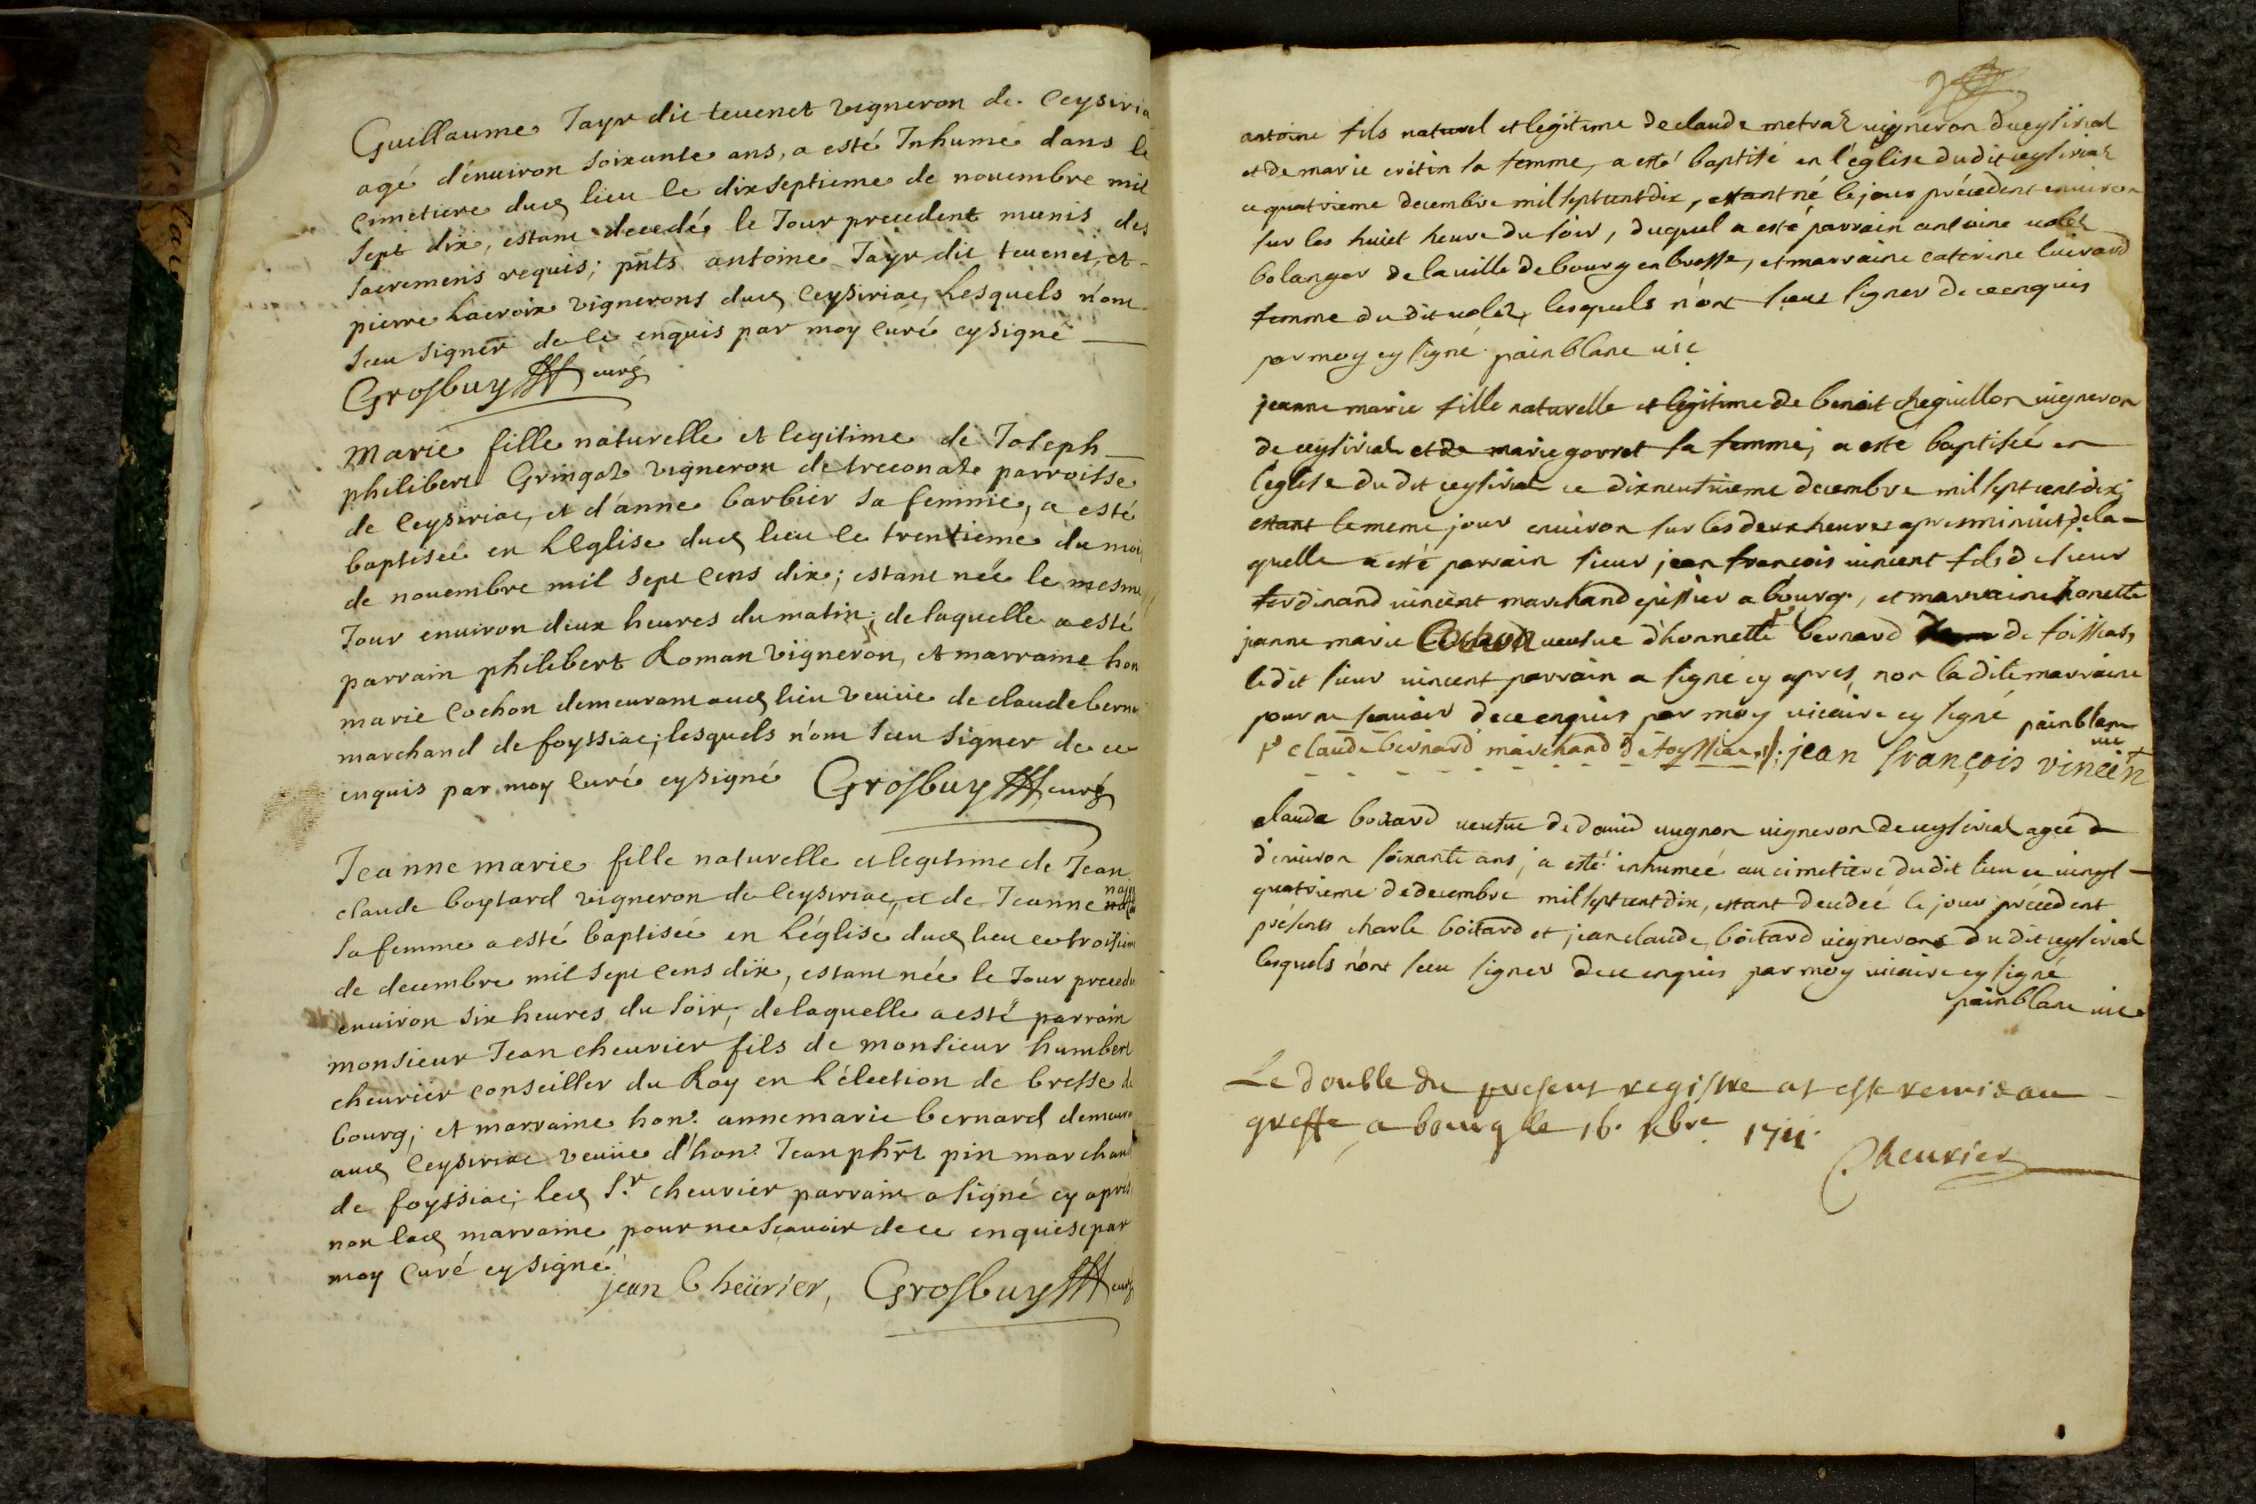 Guillaume Jayr dit tevenet vigneron de Ceysiria
agé d'enuiron soixante ans, a esté Inhumé dans le
cimetiere dud lieu le dixseptieme de nouembre mil
sept dix, estant decedé le Jour precedent munis des
sacremens requis; pnts antoine Jayr dit tevenet, et
pierre Lacroix vignerons dud Ceysiriac, Lesquels n'ont
sceu signer de ce enquis par moy curé cysigné
Grosbuy curé
Marie fille naturelle et legitime de Joseph
philibert Gringoz vigneron de treconaz parroisse
de Ceysiriac, et d'anne barbier sa femme, a esté
baptisée en L'Eglise dud lieu le trentiéme du moi
de nouembre mil sept cens dix; estant née le mesme
Jour enuiron deux heures du matin; de laquelle a esté
parrain philibert Roman vigneron, et marraine hon
marie Cochon demeurant aud lieu veuüe de claude berna
marchand de foyssiac; lesquels n'ont sceu signer de ce
enquis par moy curé cysigné Grosbuy curé
Jeanne marie fille naturelle et legitime de Jean
claude boytard vigneron de Ceysiriac, et de Jeanne
sa femme a esté baptisée en L'église dud lieu ce troisiem
de decembre mil sept cens dix, estant née le Jour precede
enuiron six heures du soir; de laquelle a esté parrain
monsieur Jean cheurier fils de monsieur humbert
cheurier conseiller du Roy en L'élection de bresse de
bourg; et marraine hon. anne marie bernard demeura
aud Ceysiriac veuüe d'hon. Jean phrt pin marchand
de foyssiac; led Sr cheurier parrain a signé cy apres
non lad marraine pour ne scauoir de ce enquise par
moy curé cysigné
jean Cheürier, Grosbuy curé
antoine fils naturel et legitime de claude metraz uigneron de ceysiriat
et de marie cretin sa femme, a esté baptisé en l'église du dit ceysiriat
ce quatrieme decembre mil sept cent dix, estant né le jour précedent enuiron
sur les huict heure du soir, duquel a esté parrain antoine uolet
bolanger de la uille de bourg en bresse, et marraine caterine
femme du dit uolet, lesquels n'ont sceus signer de ce enquis
par moy cy signé painblanc uic
jeanne marie fille naturelle et legitime de benoit cheguillon uigneron
de ceysiriat et de marie gorret sa femme, a esté baptiseé en
l'eglise du dit ceysiriat ce dixneufuieme decembre mil sept cent dix,
estant le meme jour enuiron sur les deux heures apres minuit, de la-
quelle a esté parrain sieur jean françois uincent fils de sieur
ferdinand uincent marchand epissier a bourg, et marraine honette
janne marie Cochon ueufue d'honnette bernard de foissias,
le dit sieur uincent parrain a signé cy apres, non la dite marraine
pour ne scauoir de ce enquis par moy uicaire cy signé painblanc
uic
claude bernard marchand de foyssiac jean françois vincent
claude boitard ueufue de dauid uugnon uigneron de ceysiriat ageé de
d'enuiron soixante ans, a esté inhumeé au cimetiere du dit lieu ce uingt
quatrieme de decembre mil sept cent dix, estant decedeé le jour précedent
présents charle boitard et jean claude boitard uignerons du dit ceysiriat
lesquels n'ont sceu signer de ce enquis par moy uicaire cy signé
painblanc uic
Le double du present registre at este remis au
greffe a bourg le 16. xbre 1711.
Cheurier